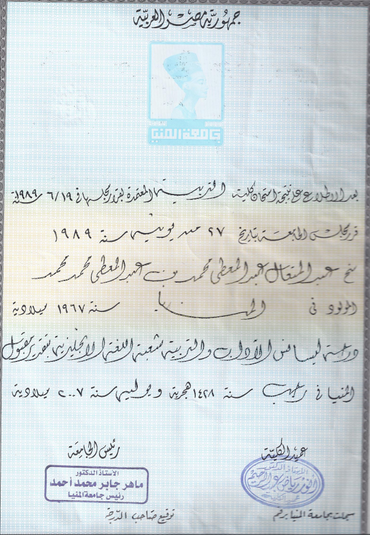 جمهورية مصر العربية
جامعة المنيا
بعد الاطلاع على نتيجة امتحان كلية التربية المعتمدة بقرار مجلسها في ٦/١٩ سنة ١٩٨٩
قرر مجلس الجامعة بتاريخ ٢٧ من يونيه سنة ١٩٨٩
منح عبد المتعال عبد المعطى محمد
المولود في المنيا سنة ١٩٦٧ ميلادية
درجة ليسانس الآداب والتربية شعبة اللغة الإنجليزية بتقدير مقبول
المنيا في رجب سنة ١٤٢٨ هجرية و يوليه سنة ٢٠٠٧ ميلادية
عميد الكلية
رئيس الجامعة
الأستاذ الدكتور
ماهر جابر محمد أحمد
رئيس جامعة المنيا
سجلت بجامعة المنيا برقم
توقيع صاحب الدرجة